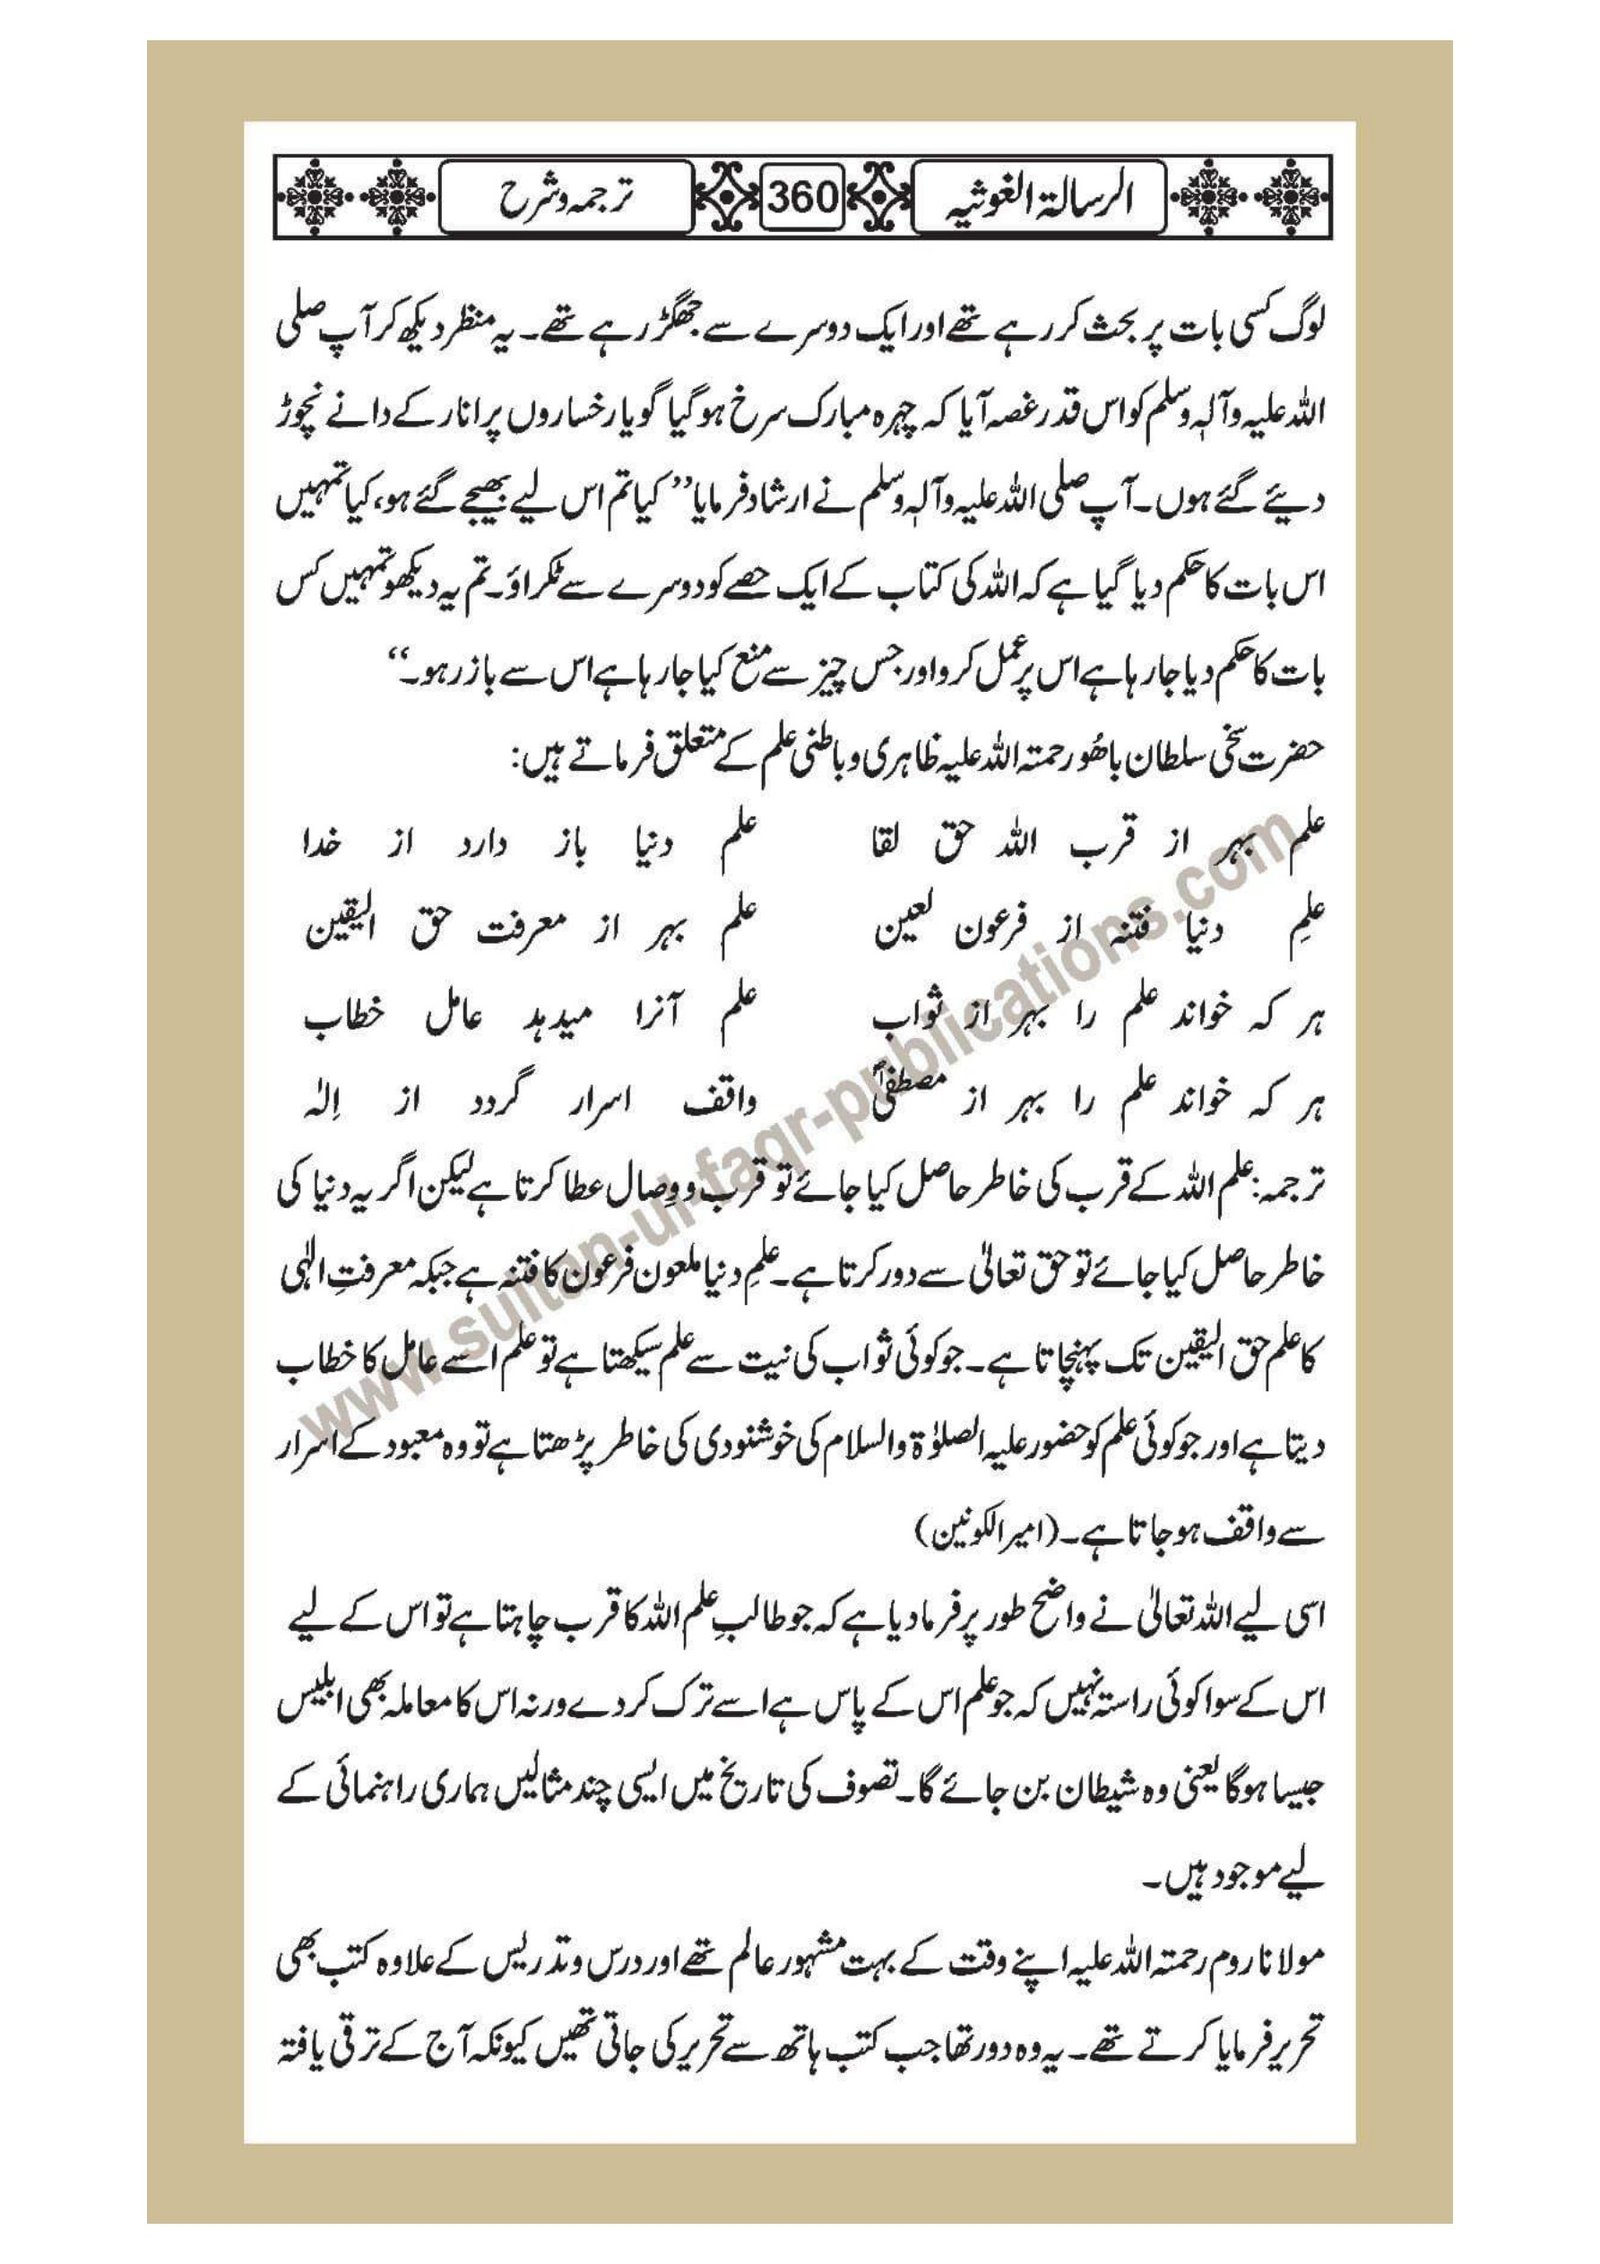 الرسالۃ الغوثیہ 360 ترجمہ و شرح
لوگ کسی بات پر بحث کر رہے تھے اور ایک دوسرے سے جھگڑ رہے تھے۔ یہ منظر دیکھ کر آپ صلی
اللہ علیہ وآلہٖ وسلم کو اس قدر غصہ آیا کہ چہرہ مبارک سرخ ہو گیا گویا رخساروں پر انار کے دانے نچوڑ
دیئے گئے ہوں۔ آپ صلی اللہ علیہ وآلہٖ وسلم نے ارشاد فرمایا ’’کیا تم اس لیے بھیجے گئے ہو، کیا تمہیں
اس بات کا حکم دیا گیا ہے کہ اللہ کی کتاب کے ایک حصے کو دوسرے سے ٹکراؤ۔ تم یہ دیکھو تمہیں کس
بات کا حکم دیا جا رہا ہے اس پر عمل کرو اور جس چیز سے منع کیا جا رہا ہے اس سے باز رہو۔‘‘
حضرت سخی سلطان باھُو رحمتہ اللہ علیہ ظاہری و باطنی علم کے متعلق فرماتے ہیں:
علم بہر از قرب اللہ حق لقا علم دنیا باز دارد از خدا
علمِ دنیا فتنہ از فرعون لعین علم بہر از معرفت حق الیقین
ہر کہ خواند علم را بہر از ثواب علم آنرا میدہد عامل خطاب
ہر کہ خواند علم را بہر از مصطفیؐ واقف اسرار گردد از اِلٰہ
ترجمہ: علم اللہ کے قرب کی خاطر حاصل کیا جائے تو قرب و وِصال عطا کرتا ہے لیکن اگر یہ دنیا کی
خاطر حاصل کیا جائے تو حق تعالیٰ سے دور کرتا ہے۔ علمِ دنیا ملعون فرعون کا فتنہ ہے جبکہ معرفتِ الٰہی
کا علم حق الیقین تک پہنچاتا ہے۔ جو کوئی ثواب کی نیت سے علم سیکھتا ہے تو علم اسے عامل کا خطاب
دیتا ہے اور جو کوئی علم کو حضور علیہ الصلوٰۃ والسلام کی خوشنودی کی خاطر پڑھتا ہے تو وہ معبود کے اسرار
سے واقف ہو جاتا ہے۔ (امیر الکونین)
اسی لیے اللہ تعالیٰ نے واضح طور پر فرما دیا ہے کہ جو طالبِ علم اللہ کا قرب چاہتا ہے تو اس کے لیے
اس کے سوا کوئی راستہ نہیں کہ جو علم اس کے پاس ہے اسے ترک کر دے ورنہ اس کا معاملہ بھی ابلیس
جیسا ہوگا یعنی وہ شیطان بن جائے گا۔ تصوف کی تاریخ میں ایسی چند مثالیں ہماری راہنمائی کے
لیے موجود ہیں۔
مولانا روم رحمتہ اللہ علیہ اپنے وقت کے بہت مشہور عالم تھے اور درس و تدریس کے علاوہ کتب بھی
تحریر فرمایا کرتے تھے۔ یہ وہ دور تھا جب کتب ہاتھ سے تحریر کی جاتی تھیں کیونکہ آج کے ترقی یافتہ
www.sultan-ul-faqr-publications.com